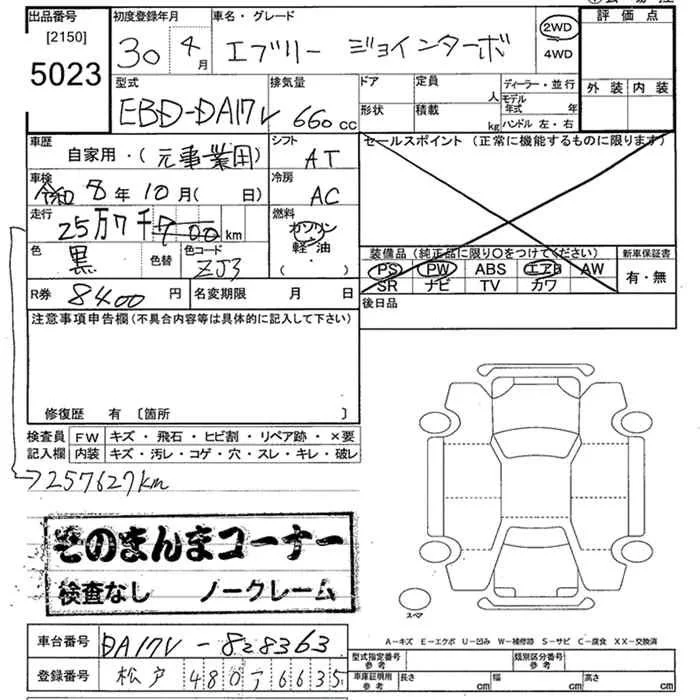 出品番号 初度登録年月 車名・グレード 評価点
[2150] 5023 30 4月 エブリー ジョインターボ 2WD 4WD
外装 内装
型式 排気量 ドア 定員 人 ディーラー・並行
EBD-DA17V 660cc 形状 積載 kg モデル年式 年
ハンドル 左・右
車歴 自家用・(元事業用) シフト AT セールスポイント (正常に機能するものに限ります)
車検 令和8年10月(日) 冷房 AC
走行 25万7千700km 燃料 ガソリン 軽・油 ( )
色 黒 色替 色コード ZJ3
装備品 (純正品に限り○をつけてください) 新車保証書
PS PW ABS エアB AW 有・無
SR ナビ TV カワ
R券 8400円 名変期限 月 日 後日品
注意事項申告欄 (不具合内容等は具体的に記入して下さい)
修復歴 有 [箇所 ]
検査員 FW キズ・飛石・ヒビ割・リペア跡・×要
記入欄 内装 キズ・汚レ・コゲ・穴・スレ・キレ・破レ
257627km
そのまんまコーナー
検査なし ノークレーム
スペア
A-キズ E-エクボ U-凹み W-補修跡 S-サビ C-腐食 XX-交換済
車台番号 DA17V-828363
登録番号 松戸 480 ア 6635
型式指定番号 参考 類別区分番号 参考
車庫証明用 参考 長さ cm 幅 cm 高さ cm